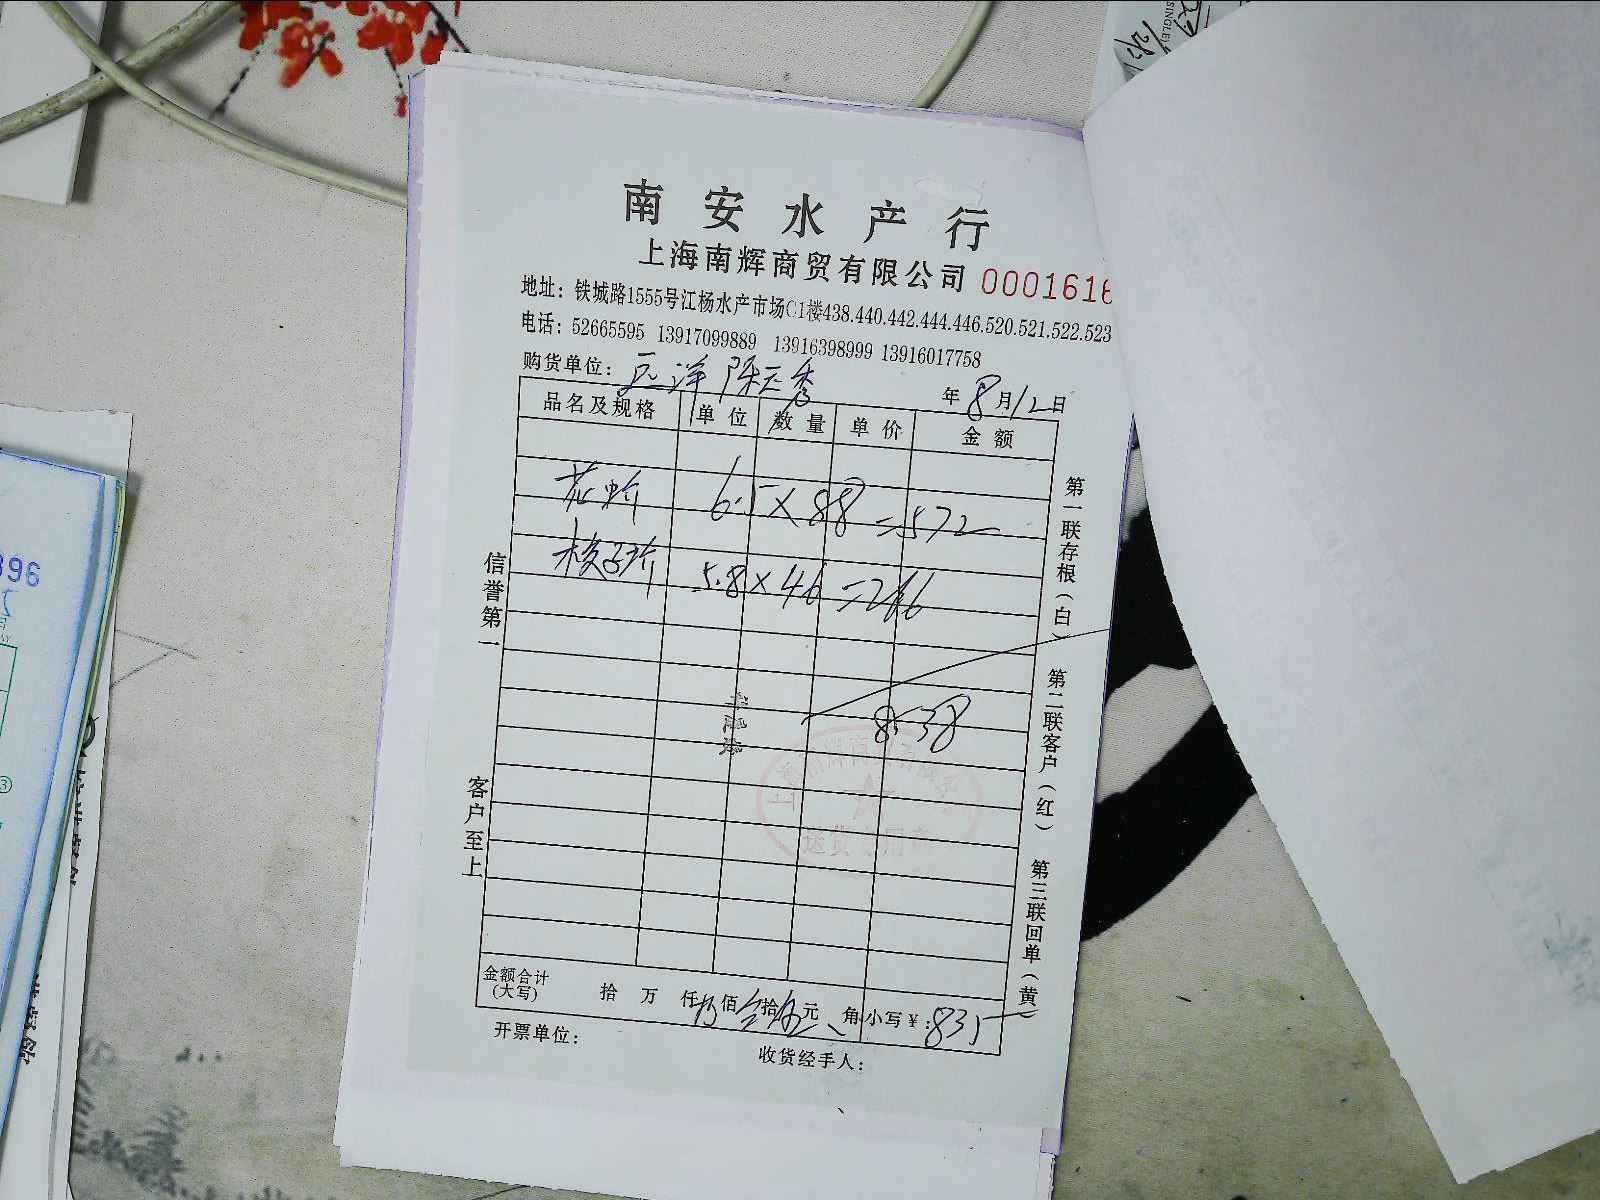 南安水产行
上海南辉商贸有限公司 0001616
地址：铁城路1555号江杨水产市场C1楼438.440.442.444.446.520.521.522.523
电话：52665595 13917099889 13916398999 13916017758
购货单位：远洋 陈玉秀 年8月12日
品名及规格 单位 数量 单价 金额
花蚧 6.5×88=572
5.8×46=266
838
信誉第一 客户至上
第一联存根（白） 第二联客户（红） 第三联回单（黄）
上海南辉商贸有限公司
送货专用章
金额合计
(大写) 拾 万 仟 捌佰叁拾伍元 角 小写￥：835
开票单位： 收货经手人：
896